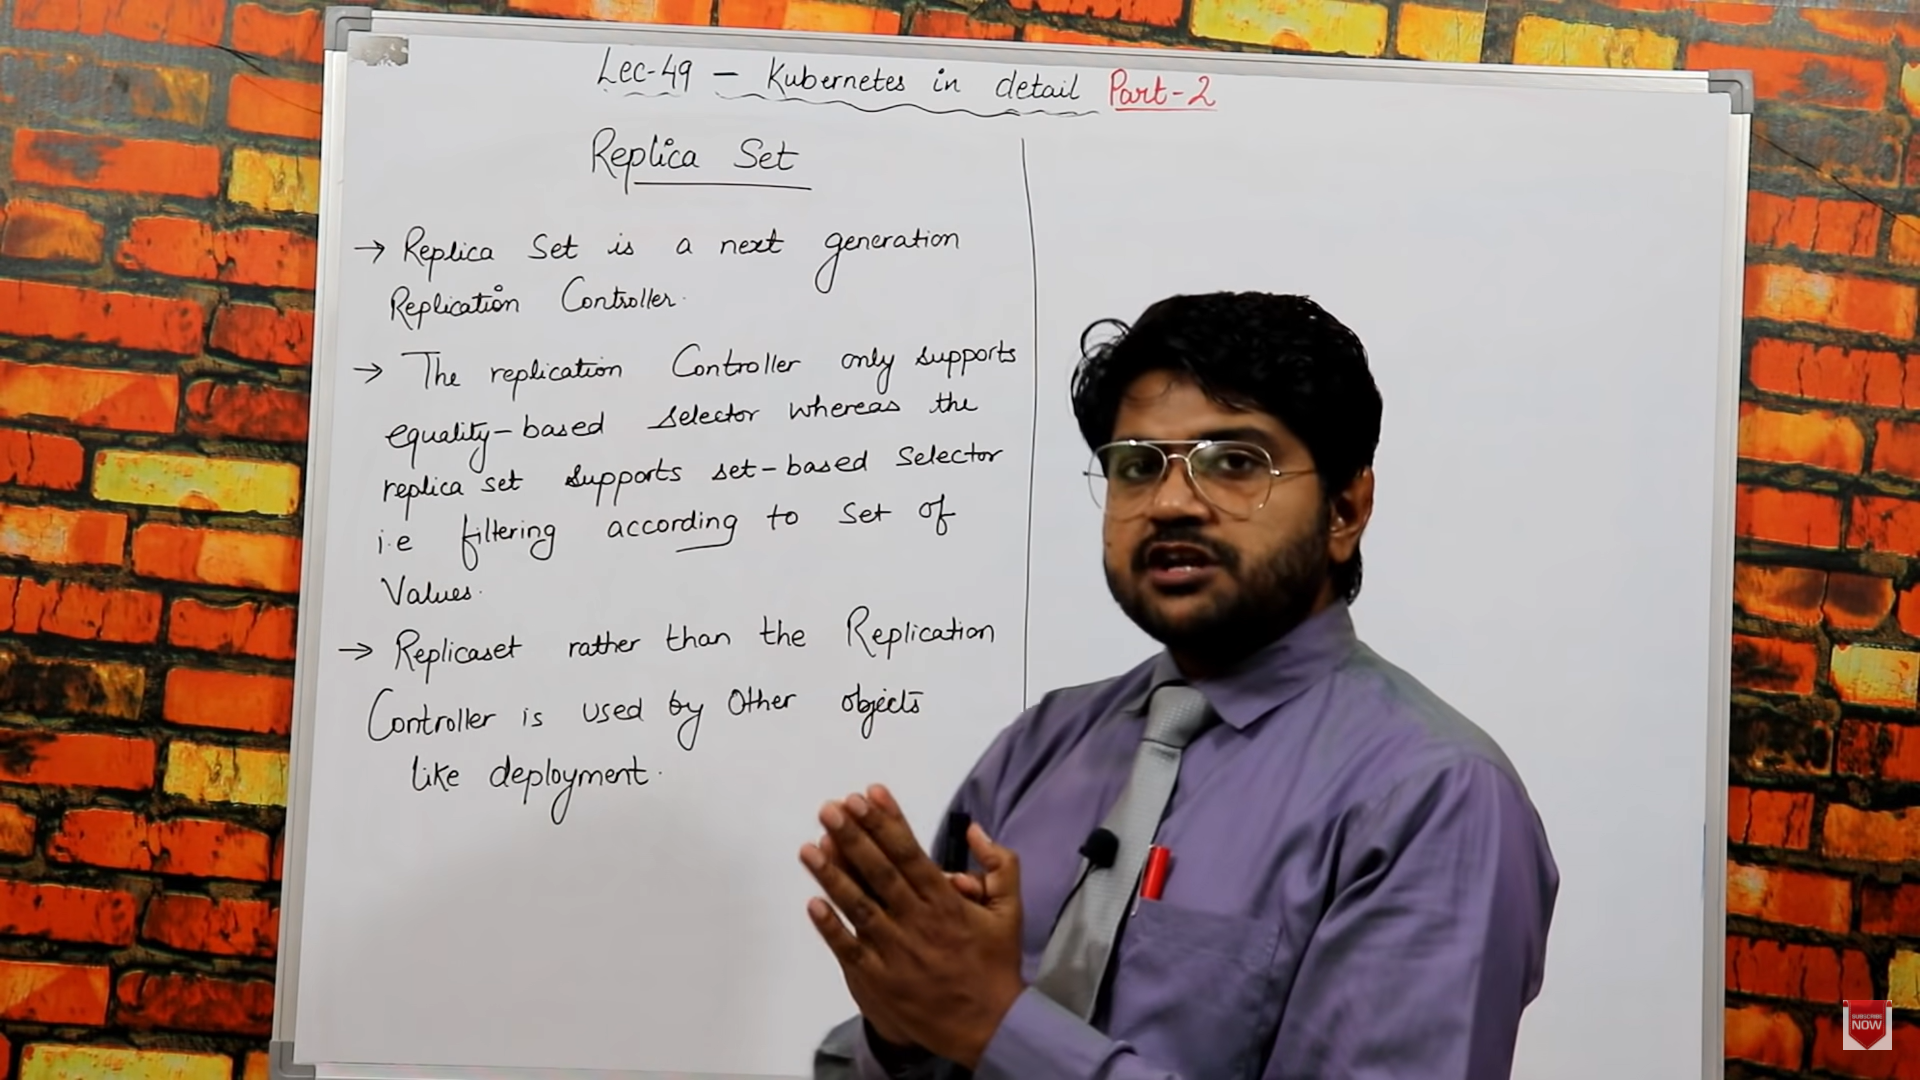 Lec-49 – Kubernetes in detail Part-2
Replica Set
→ Replica Set is a next generation
Replication Controller.
→ The replication Controller only supports
equality-based selector whereas the
replica set supports set-based selector
i.e filtering according to set of
Values.
→ Replicaset rather than the Replication
Controller is used by Other objects
like deployment.
SUBSCRIBE
NOW